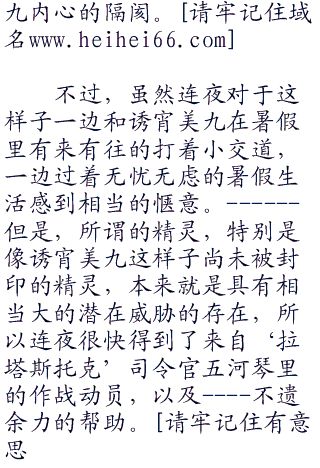 九内心的隔阂。[请牢记住域
名www.heihei66.com]
不过，虽然连夜对于这
样子一边和诱宵美九在暑假
里有来有往的打着小交道，
一边过着无忧无虑的暑假生
活感到相当的惬意。------
但是，所谓的精灵，特别是
像诱宵美九这样子尚未被封
印的精灵，本来就是具有相
当大的潜在威胁的存在，所
以连夜很快得到了来自‘拉
塔斯托克’司令官五河琴里
的作战动员，以及----不遗
余力的帮助。[请牢记住有意
思